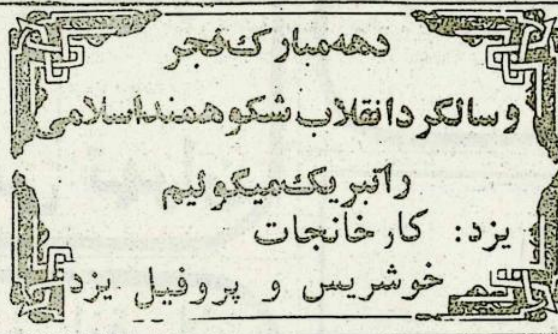 دهه‌مبارک‌فجر
و سالگرد انقلاب شکوهمند اسلامی
را تبریک میگوئیم
یزد: کارخانجات
خوشریس و پروفیل یزد